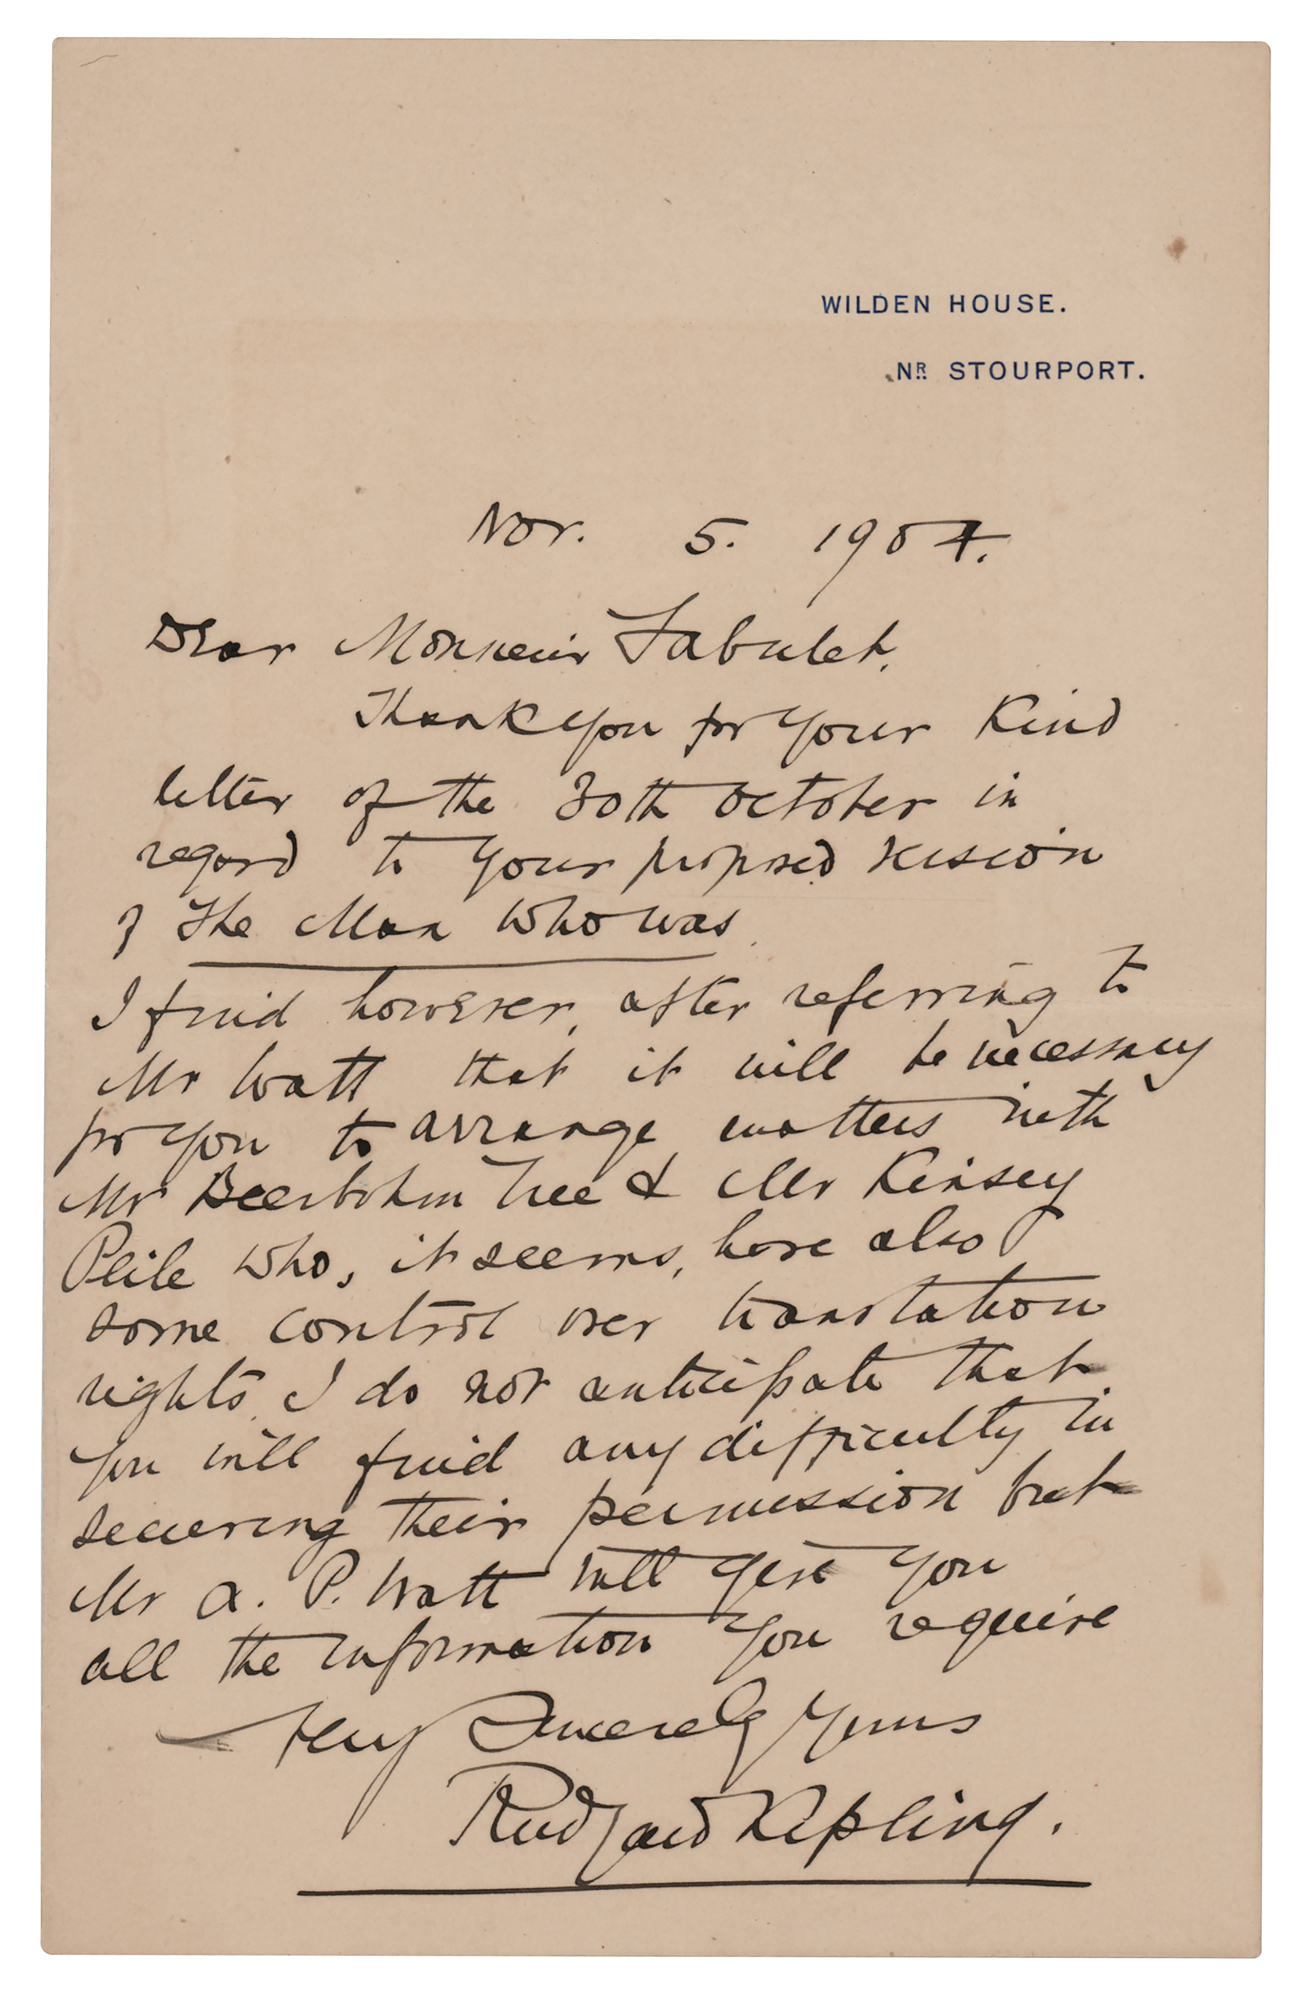 WILDEN HOUSE.
NR STOURPORT.
Nov. 5. 1904.
Dear Monsieur Fabulet,
Thank you for your kind
letter of the 30th October in
regard to your proposed version
of The Man who was.
I find however, after referring to
Mr Watt that it will be necessary
for you to arrange matters with
Mr Beerbohm Tree & Mr Kinsey
Peile who, it seems, have also
some control over translation
rights. I do not anticipate that
you will find any difficulty in
securing their permission but
Mr A. P. Watt will give you
all the information you require
Very Sincerely Yours
Rudyard Kipling.